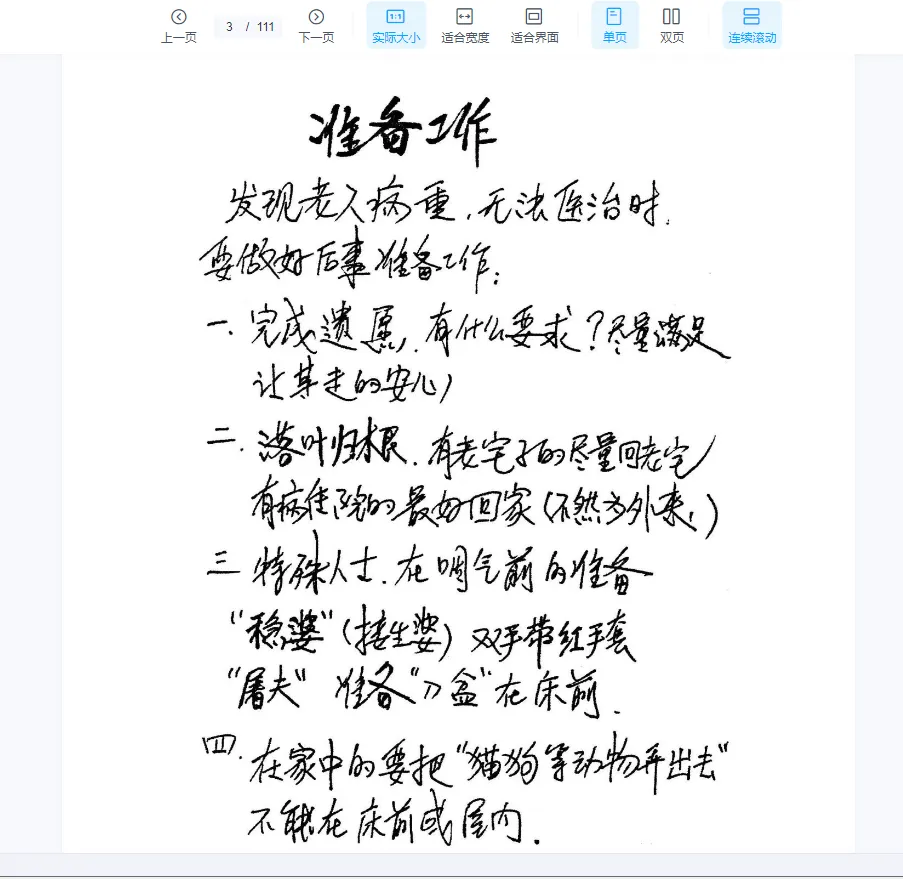 上一页
3 / 111
下一页
1:1
实际大小
适合宽度
适合界面
单页
双页
连续滚动
准备工作
发现老人病重,无法医治时.
要做好后事准备工作:
一.完成遗愿,有什么要求?尽量满足
让其走的安心)
二.落叶归根.有老宅子的尽量回老宅
有病住院的最好回家(不然为外来,)
三 特殊人士.在咽气前的准备
"稳婆"(接生婆)双手带红手套
"屠夫" 准备"刀盆"在床前.
四.在家中的要把"猫狗等动物弄出去"
不能在床前或屋内.